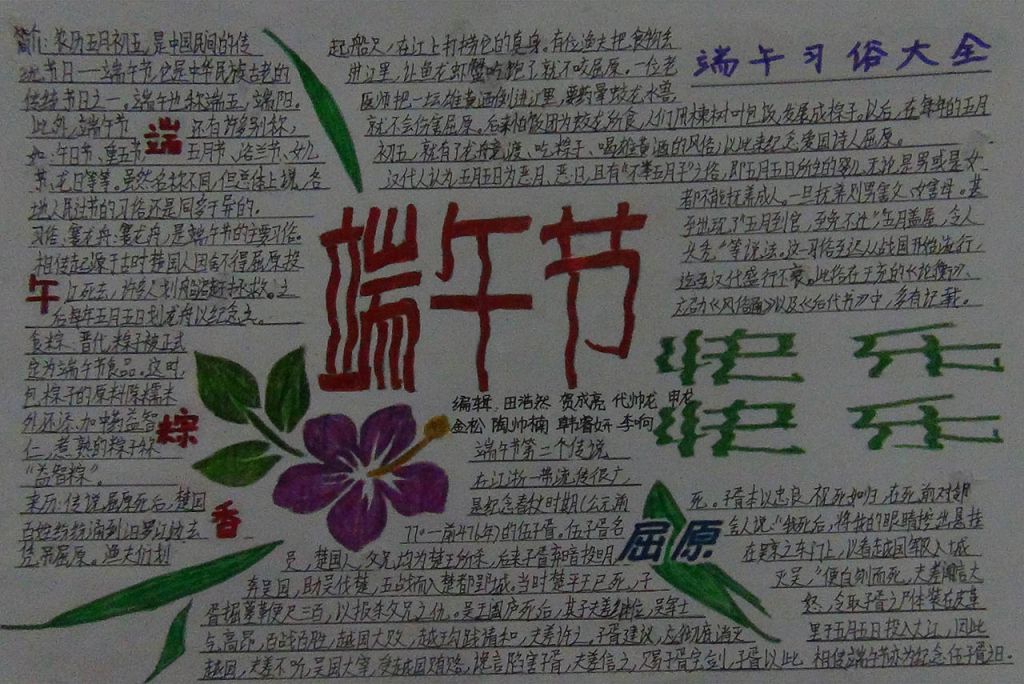 端午习俗大全
简介:农历五月初五,是中国民间的传
统节日——端午节,它是中华民族古老的
传统节日之一。端午也称端五,端阳。
此外,端午节
还有许多别称,
如:午日节、重五节、
五月节、浴兰节、女儿
节、龙日等等。虽然名称不同,但总体上说,各
地人民过节的习俗还是同多于异的。
习俗:赛龙舟:赛龙舟,是端午节的主要习俗。
相传起源于古时楚国人因舍不得屈原投
江死去,许多人划船追赶拯救。之
后每年五月五日划龙舟以纪念之。
食粽:晋代,粽子被正式
定为端午节食品。这时,
包粽子的原料除糯米
外还添加中药益智
仁,煮熟的粽子称
“益智粽”。
来历:传说屈原死后,楚国
百姓纷纷涌到汨罗江边去
凭吊屈原。渔夫们划
端
午
粽
香
起船只,在江上打捞他的真身。有位渔夫把食物丢
进江里,让鱼龙虾蟹吃饱了就不咬屈原。一位老
医师把一坛雄黄酒倒进江里,要药晕蛟龙水兽,
就不会伤害屈原。后来怕饭团为蛟龙所食,人们用楝树叶包饭,发展成粽子。以后,在每年的五月
初五,就有了龙舟竞渡、吃粽子、喝雄黄酒的风俗;以此来纪念爱国诗人屈原。
汉代人认为,五月五日为恶月、恶日,且有“不举五月子”之俗,即五月五日所生的婴儿,无论是男或是女
都不能抚养成人。一旦抚养则男害父、女害母。甚
至出现了“五月到官,至免不迁”“五月盖屋,令人
头秃”等说法。这一习俗至迟从战国开始流行,
迄至汉代盛行不衰。此俗在王充的《论衡》、
应劭《风俗通》以及《后代书》中,多有记载。
端午节
快乐
快乐
编辑:田浩然 贾成亮 代帅龙 申龙
金松 陶帅楠 韩睿妍 李响
端午节第二个传说
在江浙一带流传很广,
是纪念春秋时期(公元前
770—前476年)的伍子胥。伍子胥名
员,楚国人,父兄均为楚王所杀,后来子胥弃暗投明,
奔吴国,助吴伐楚,五战而入楚都郢城。当时楚平王已死,子
胥掘墓鞭尸三百,以报杀父兄之仇。吴王阖庐死后,其子夫差继位,吴军士
气高昂,百战百胜,越国大败,越王勾践请和,夫差许之。子胥建议,应彻底消灭
越国,夫差不听,吴国大宰,受越国贿赂,谗言陷害子胥,夫差信之,赐子胥宝剑,子胥以此
屈原
死。子胥本以忠良,视死如归,在死前对邻
舍人说:“我死后,将我的眼睛挖出悬挂
在吴京之东门上,以看越国军队入城
灭吴”,便自刎而死,夫差闻言大
怒,令取子胥之尸体装在皮革
里于五月五日投入大江,因此
相传端午节亦为纪念伍子胥之日。